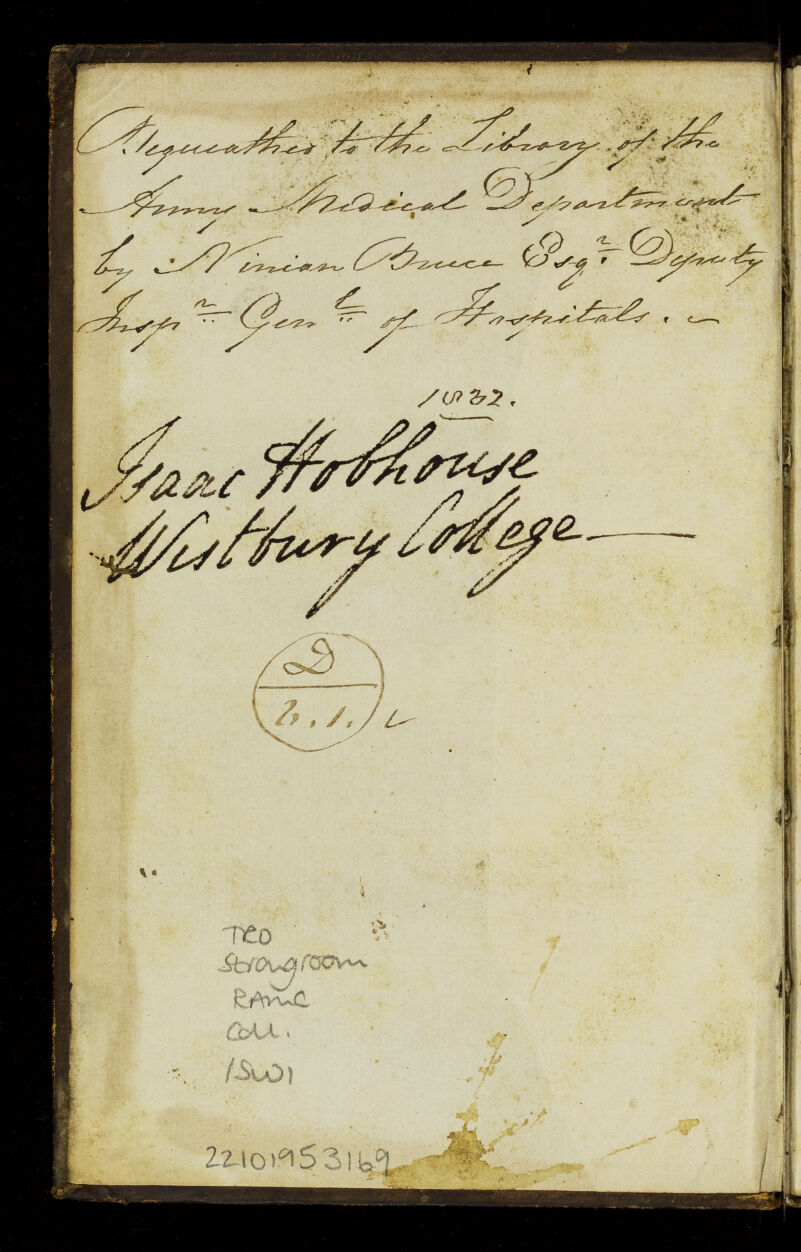 Bequeathed to the Library of the
Army Medical Department
by Ninian Bruce Esqr. Deputy
Inspr. Genl. of Hospitals.
1832.
Isaac Hobhouse
Westbury College
D
2.1.
TRO
Strongroom
RAMC
Coll.
/SWI
22101953169